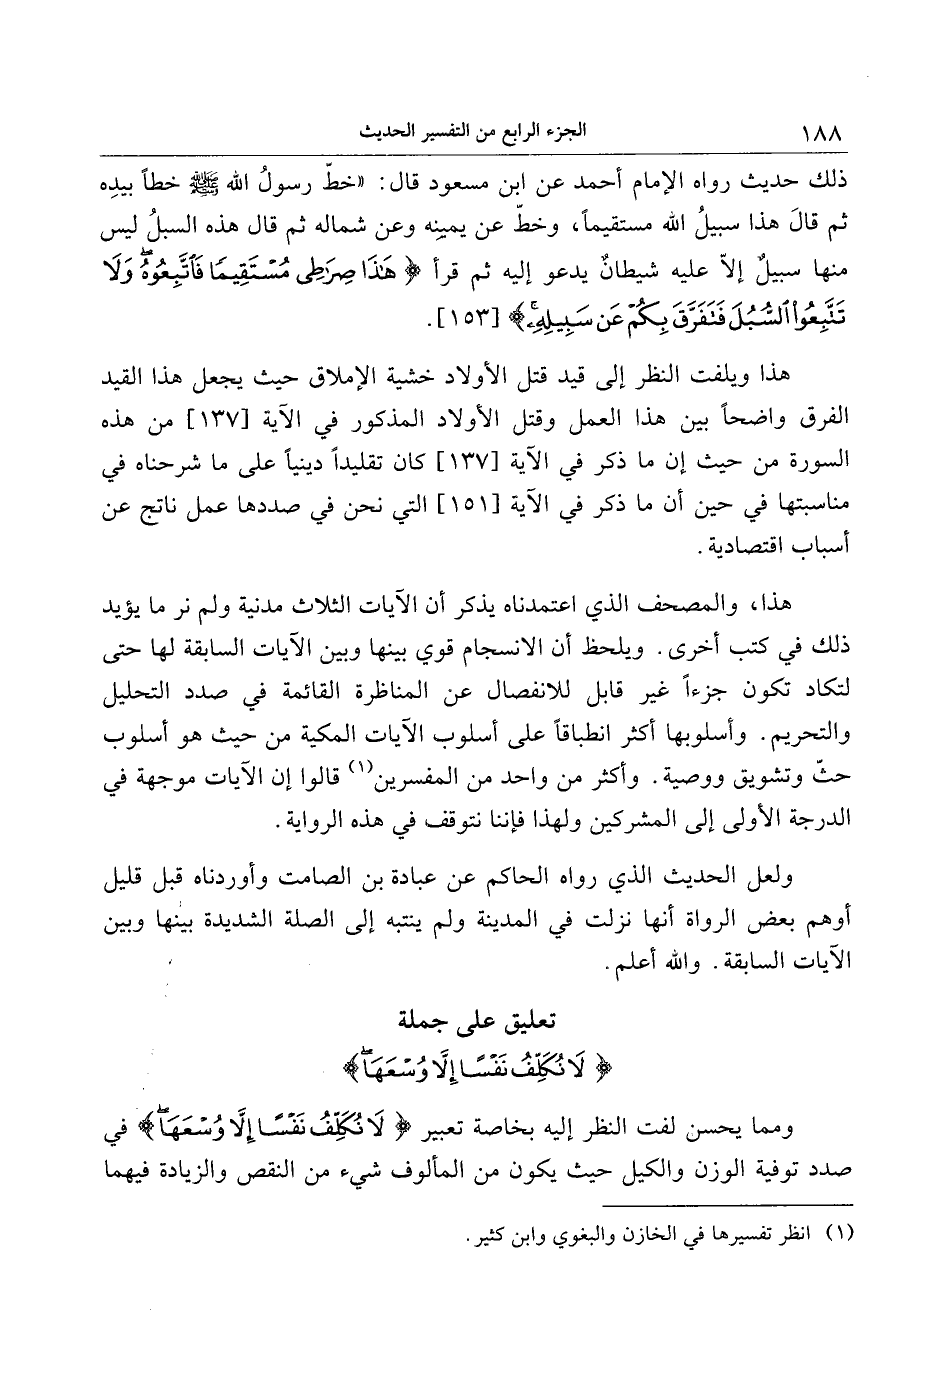 ١٨٨ الجزء الرابع من التفسير الحديث
ذلك حديث رواه الإمام أحمد عن ابن مسعود قال: «خطّ رسولُ الله ﷺ خطاً بيدِه
ثم قالَ هذا سبيلُ الله مستقيماً، وخطّ عن يمينِه وعن شماله ثم قال هذه السبلُ ليس
منها سبيلٌ إلاّ عليه شيطانٌ يدعو إليه ثم قرأ ﴿ هَٰذَا صِرَٰطِى مُسْتَقِيمًا فَٱتَّبِعُوهُۖ وَلَا
تَتَّبِعُوا۟ ٱلسُّبُلَ فَتَفَرَّقَ بِكُمْ عَن سَبِيلِهِۦۚ ﴾ [١٥٣].
هذا ويلفت النظر إلى قيد قتل الأولاد خشية الإملاق حيث يجعل هذا القيد
الفرق واضحاً بين هذا العمل وقتل الأولاد المذكور في الآية [١٣٧] من هذه
السورة من حيث إن ما ذكر في الآية [١٣٧] كان تقليداً دينياً على ما شرحناه في
مناسبتها في حين أن ما ذكر في الآية [١٥١] التي نحن في صددها عمل ناتج عن
أسباب اقتصادية.
هذا، والمصحف الذي اعتمدناه يذكر أن الآيات الثلاث مدنية ولم نر ما يؤيد
ذلك في كتب أخرى. ويلحظ أن الانسجام قوي بينها وبين الآيات السابقة لها حتى
لتكاد تكون جزءاً غير قابل للانفصال عن المناظرة القائمة في صدد التحليل
والتحريم. وأسلوبها أكثر انطباقاً على أسلوب الآيات المكية من حيث هو أسلوب
حثّ وتشويق ووصية. وأكثر من واحد من المفسرين(١) قالوا إن الآيات موجهة في
الدرجة الأولى إلى المشركين ولهذا فإننا نتوقف في هذه الرواية.
ولعل الحديث الذي رواه الحاكم عن عبادة بن الصامت وأوردناه قبل قليل
أوهم بعض الرواة أنها نزلت في المدينة ولم ينتبه إلى الصلة الشديدة بينها وبين
الآيات السابقة. والله أعلم.
تعليق على جملة
﴿ لَا نُكَلِّفُ نَفْسًا إِلَّا وُسْعَهَاۖ ﴾
ومما يحسن لفت النظر إليه بخاصة تعبير ﴿ لَا نُكَلِّفُ نَفْسًا إِلَّا وُسْعَهَاۖ ﴾ في
صدد توفية الوزن والكيل حيث يكون من المألوف شيء من النقص والزيادة فيهما
(١) انظر تفسيرها في الخازن والبغوي وابن كثير.